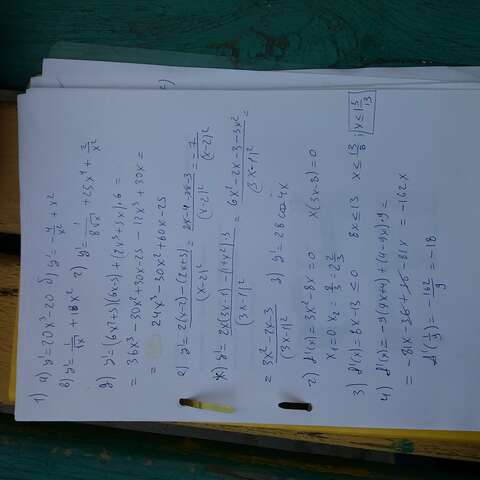 1) а) y'=20x³-20 б) y'= -4/x² + x²
в) y'= 1/√x + 18x² г) y'= 1/(8√x) + 25x⁴ + 2/x²
д) y'=(6x²+5)(6x-5)+(2x³+5x)·6=
= 36x³-30x²+30x-25-12x³+30x=
= 24x³-30x²+60x-25
е) y'= (2(x-2)-(2x+3))/(x-2)² = (2x-4-2x-3)/(x-2)² = -7/(x-2)²
ж) y'= (2x(3x-1)-(1+x²)3)/(3x-1)² = (6x²-2x-3-3x²)/(3x-1)² =
= (3x²-2x-3)/(3x-1)² з) y'=28cos4x
2) f'(x)=3x²-8x=0 x(3x-8)=0
x₁=0 x₂= 8/3 = 2 2/3
3) f'(x)=8x-13≤0 8x≤13 x≤ 13/8; x≤1 5/13
4) f'(x)=-9(9x+4)+(4-9x)·9=
= -81x-36+36-81x = -162x
f'(1/9)= -162/9 = -18.